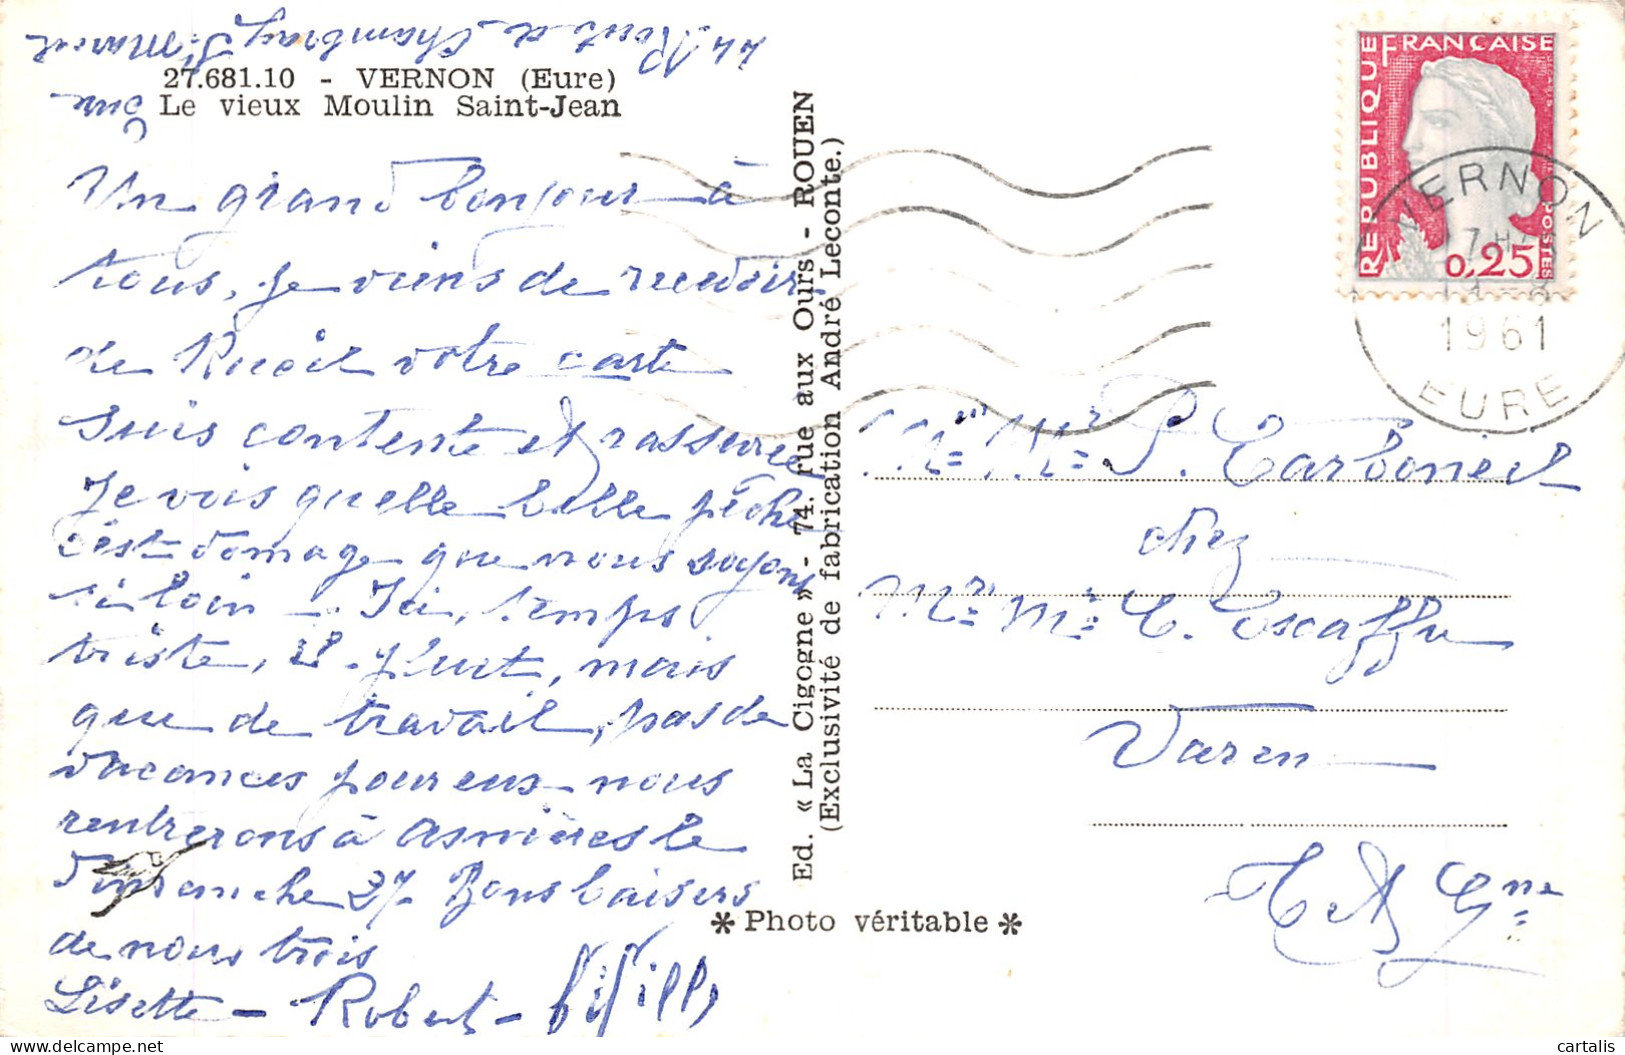 44 Route de Chambray St Marcel
Eure
27.681.10 - VERNON (Eure)
Le vieux Moulin Saint-Jean
Un grand bonjour à
tous, je viens de recevoir
de Rueil votre carte
suis contente et rassurée
Je vois quelle belle pêche
c'est domage que nous soyons
si loin - Ici, temps
triste, il pleut, mais
que de travail, pas de
vacances pour eux - nous
rentrerons à Asnières le
Dimanche 27. Bons baisers
de nous trois
Lisette - Robert - Fifille
Ed. « La Cigogne » - 74. rue aux Ours - ROUEN
(Exclusivité de fabrication André Leconte.)
* Photo véritable *
REPUBLIQUE FRANCAISE
POSTES
0,25
VERNON
17H
1961
EURE
Mme Mr P. Carboneil
chez
Mr Me C. Escaffre
Varen
T et Gne
cartalis